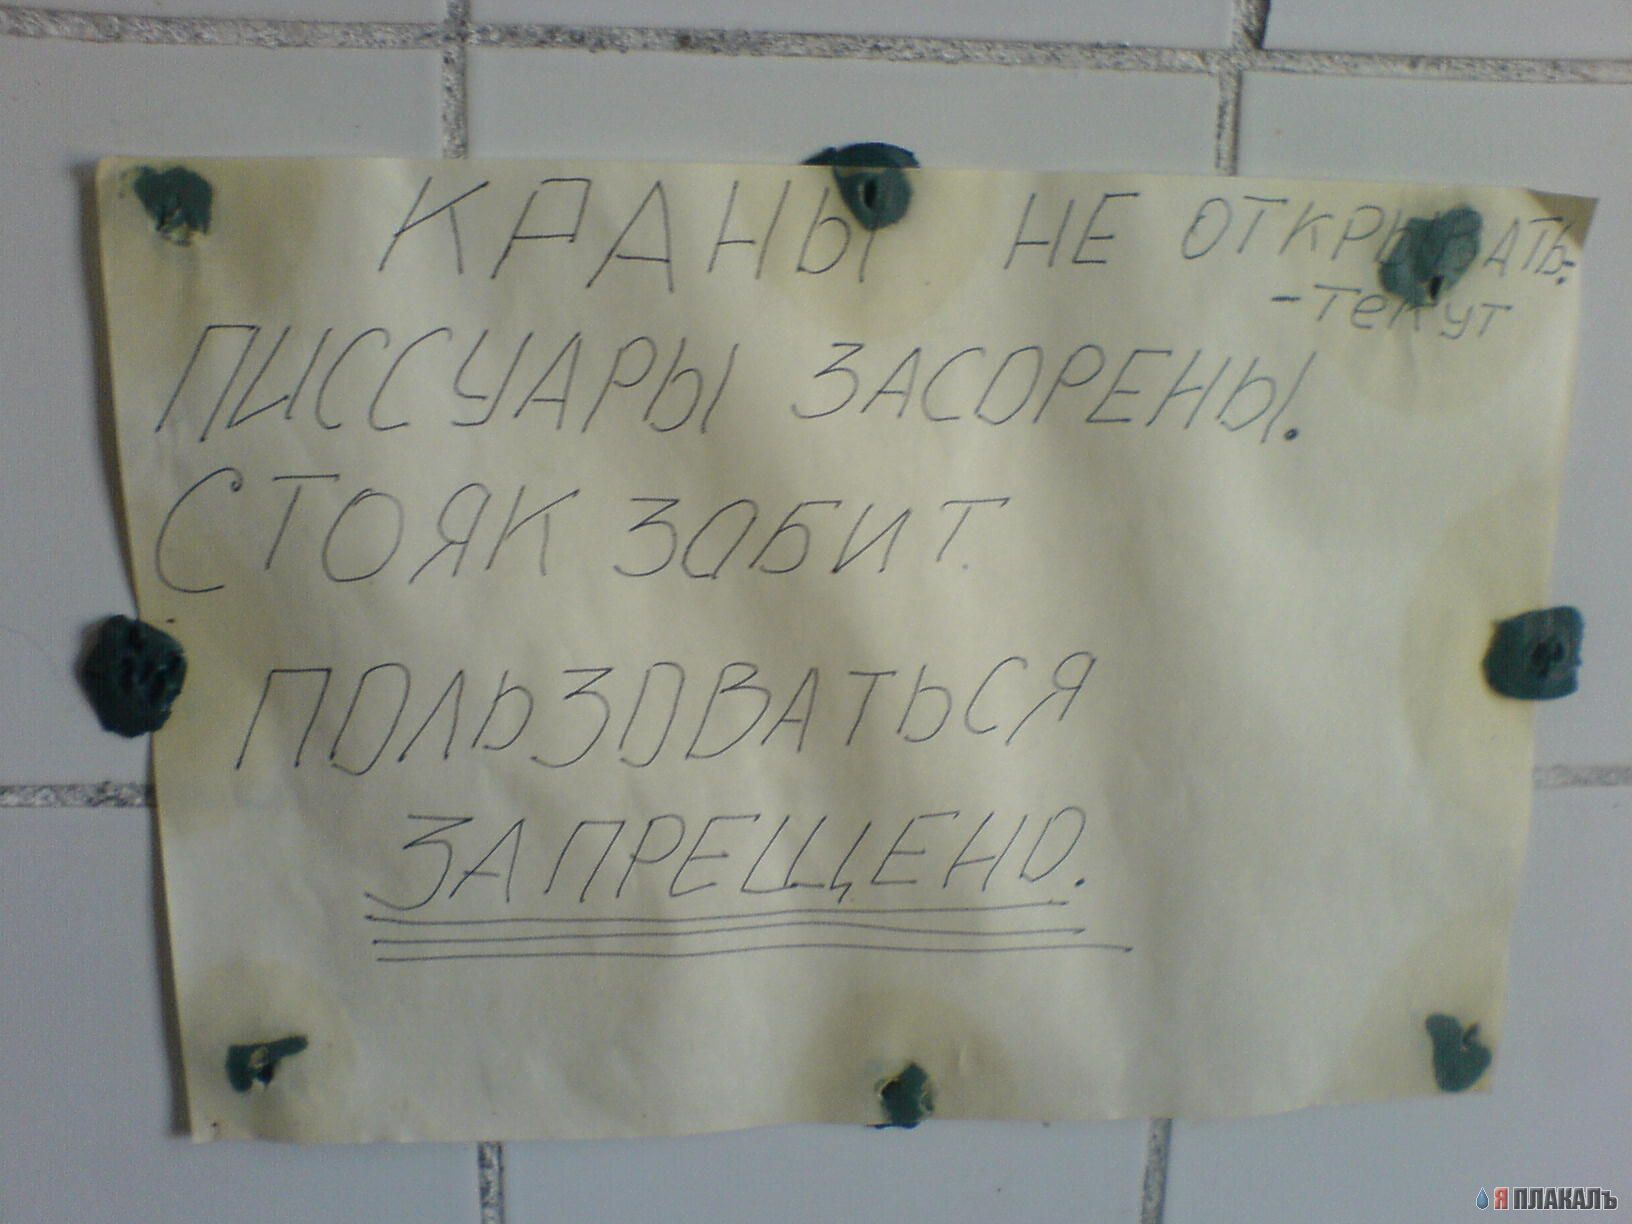 КРАНЫ НЕ ОТКРЫВАТЬ:
-текут
ПИССУАРЫ ЗАСОРЕНЫ.
СТОЯК ЗАБИТ.
ПОЛЬЗОВАТЬСЯ
ЗАПРЕЩЕНО.
Я ПЛАКАЛЪ